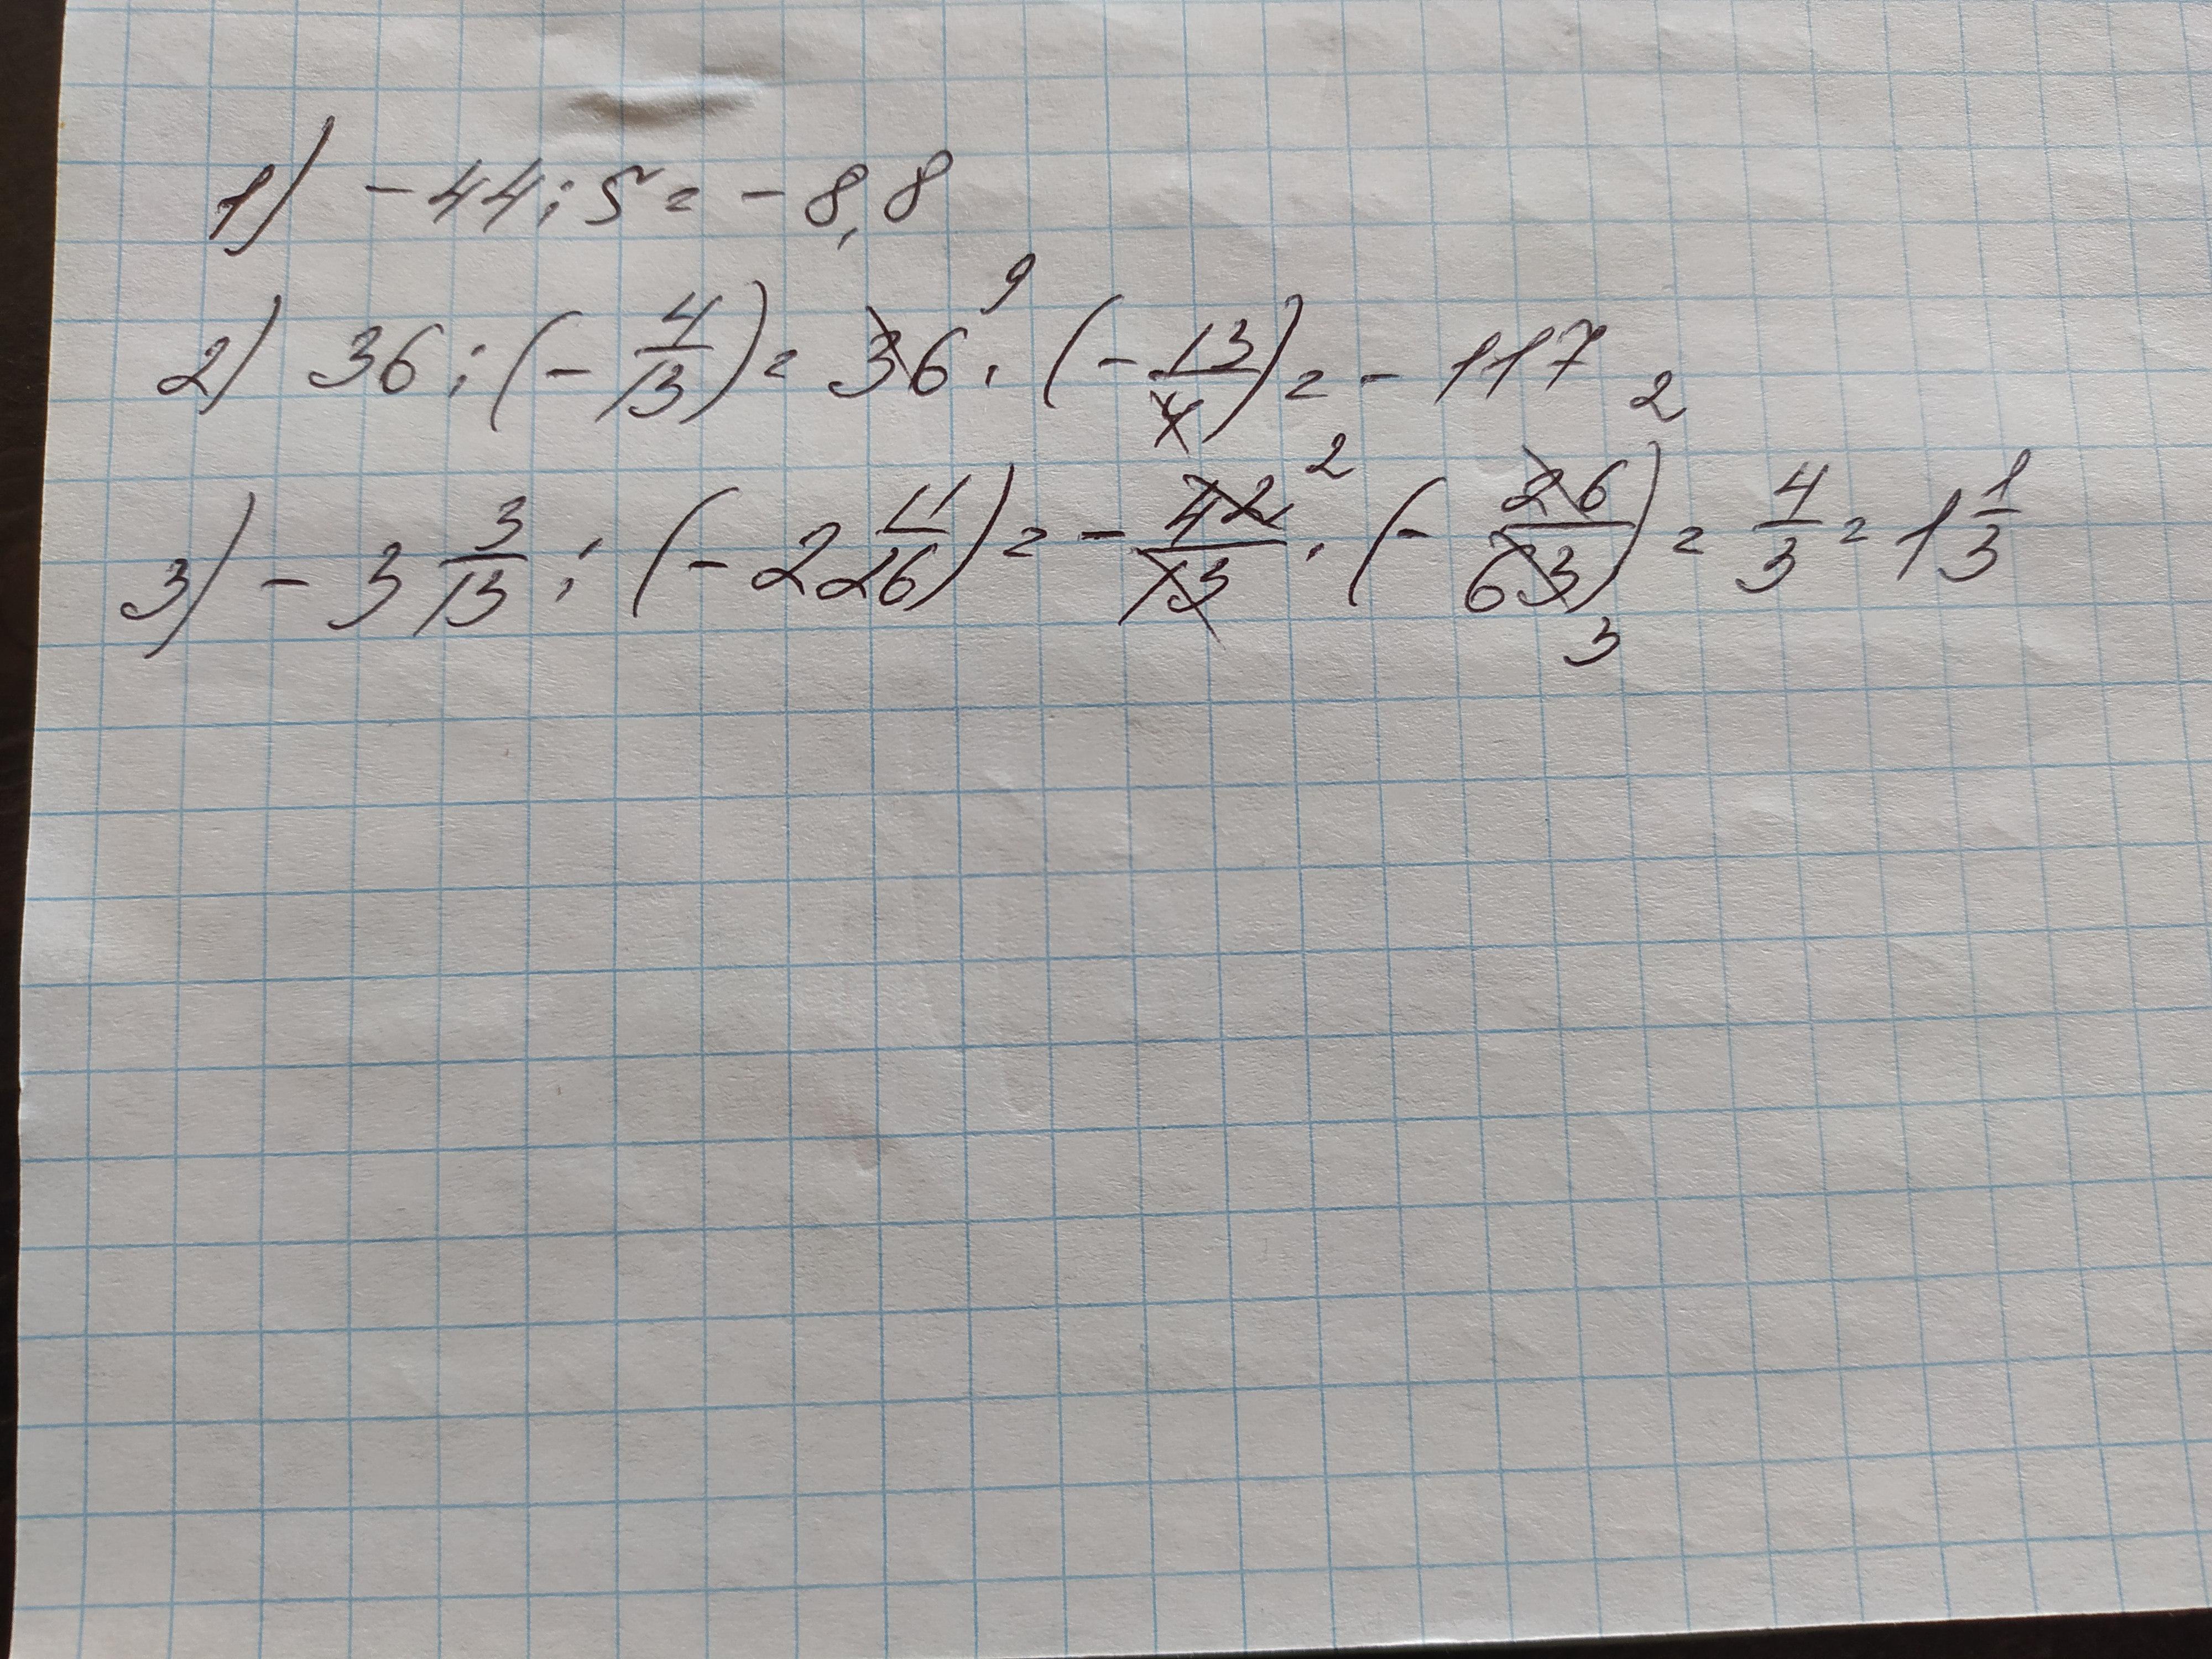 1) - 44 : 5 = - 8,8
2) 36 : (- 4/13) = 36 9 · (- 13/4) = - 117
3) - 3 3/13 : (- 2 11/26) = - 42/13 2 · (- 26/63) 2 3 = 4/3 = 1 1/3